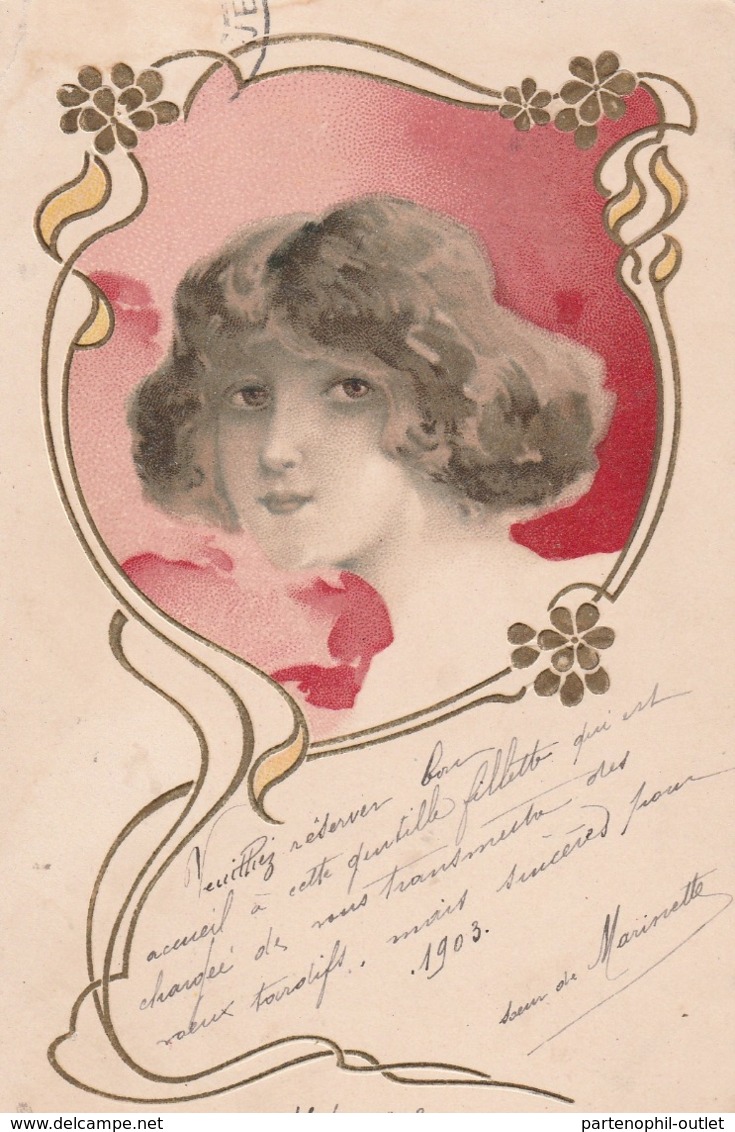 Veuillez réserver bon
accueil à cette gentille fillette qui est
chargée de vous transmettre des
vœux tardifs, mais sincères pour
1903.
sœur de Marinette
partenophil-outlet